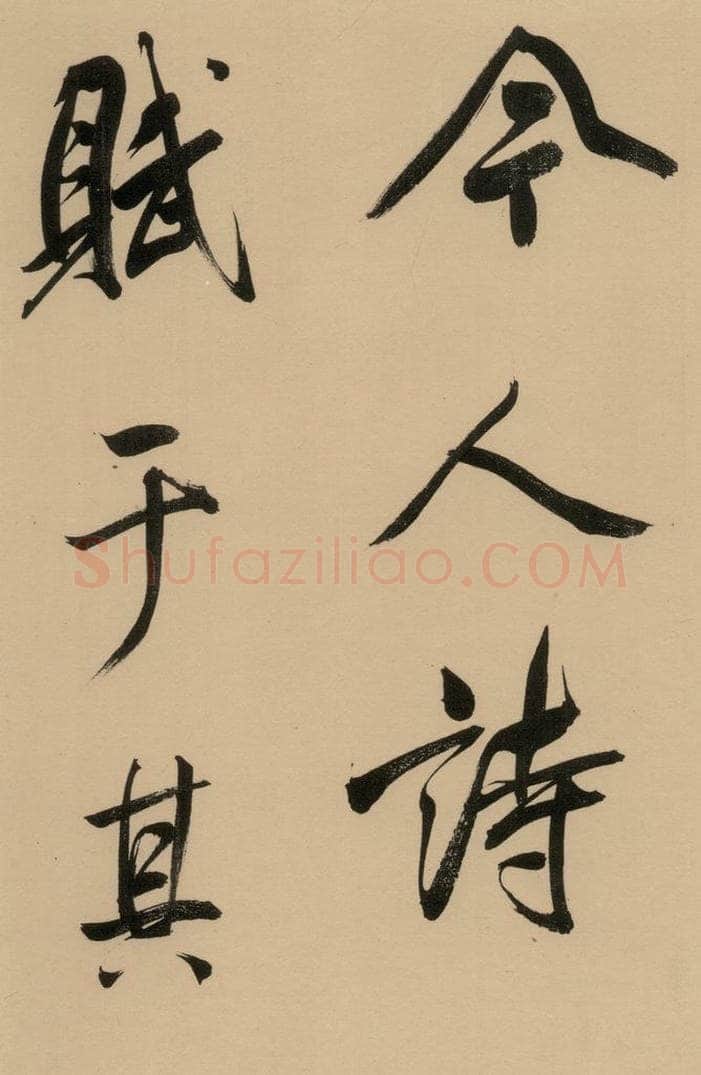 今人詩
賦于其
Shufaziliao.COM